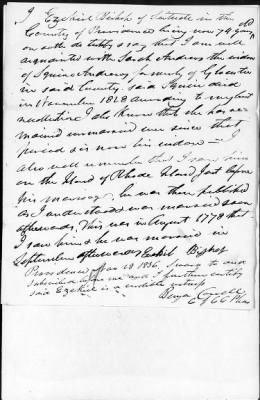 I Ezekiel Bishop of Scituate in the
County of Providence being now 79 years old
on oath do testify & say that I am well
acquainted with Sarah Andrews the widow
of Squire Andrews formerly of Glocester
in said County. said Squire died
in November 1828 according to my best
recollection I also know that she has re-
mained unmarried ever since that
period & is now his widow — I
also well remember that I saw him
on the Island of Rhode Island just before
his marriage, he was then published
as I understood & was married soon
afterwards, this was in August 1778 that
I saw him & he was married in
September afterwards Ezekiel Bishop
Providence Jan 18 1836, Sworn to and
subscribed before me and I further certify
said Ezekiel is a credible witness
Benja Cowell